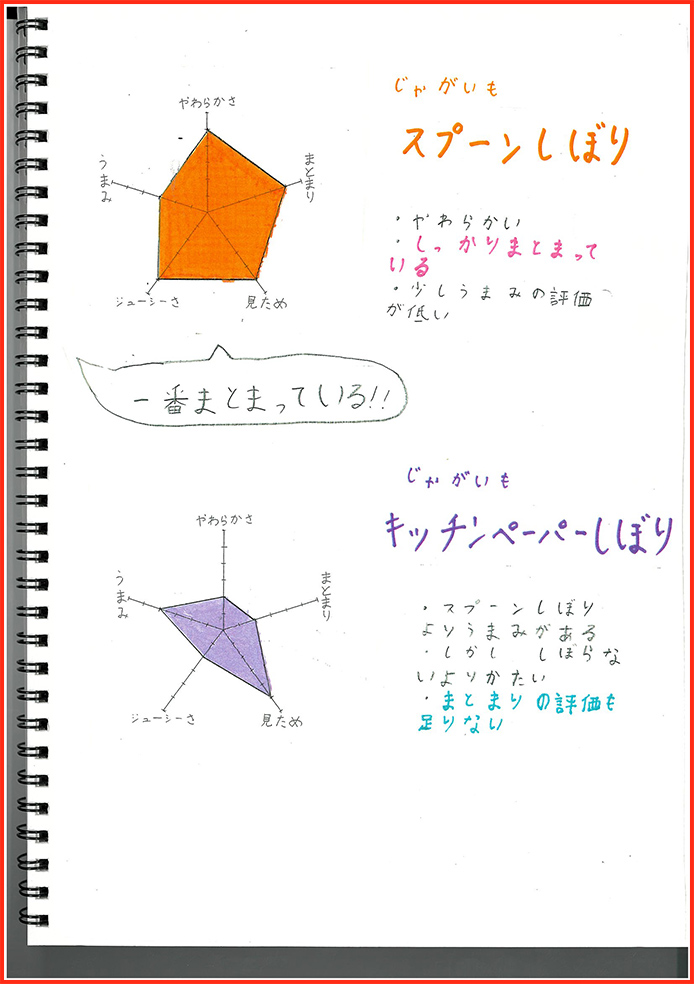 じゃがいも
スプーンしぼり
やわらかさ
まとまり
見ため
ジューシーさ
うまみ
・やわらかい
・しっかりまとまって
いる
・少しうまみの評価
が低い
一番まとまっている!!
じゃがいも
キッチンペーパーしぼり
やわらかさ
まとまり
見ため
ジューシーさ
うまみ
・スプーンしぼり
よりうまみがある
・しかし しぼらな
いよりかたい
・まとまりの評価も
足りない